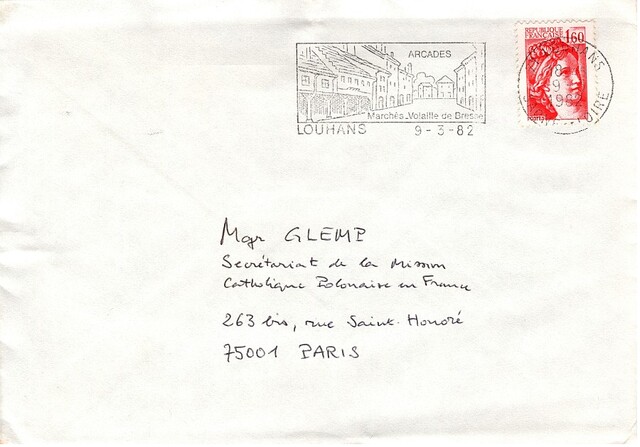 ARCADES
Marchés_Volaille de Bresse
LOUHANS 9-3-82
REPUBLIQUE
FRANÇAISE
1,60
POSTES
Mgr GLEMP
Secrétariat de la Mission
Catholique Polonaise en France
263 bis, rue Saint-Honoré
75001 PARIS